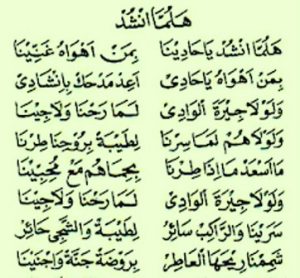 هَلُمَّا انْشُدْ
هَلُمَّا انْشُدْ يَاحَادِيْنَا بِمَنْ اَهْوَاهُ غَنِّيْنَا
بِمَنْ اَهْوَاهُ يَاحَادِىْ اَعِدْ مَدْحَكَ بِاِنْشَادِىْ
وَلَوْلَاجِيْرَةُ الْوَادِىْ لَمَا رَحْنَا وَلَاجِيْنَا
وَلَوْلَاهُمْ لَمَاسِرْنَا لِطَيْبَةْ بِرُوْحِنَا طِرْنَا
مَااَسْعَدْ مَا اِذَاطِرْنَا بِحِمَاهُمْ مَعْ مُحِبِّيْنَا
وَلَوْلَاجِيْرَةُ الْوَادِىْ لَمَا رَحْنَا وَلَاجِيْنَا
سَرَيْنَا وَالرَّاكِبْ سَائِرْ لِطَيْبَةْ وَالشَّجِّى حَائِرْ
تَتَيَّمْنَا رِيْحَهَا الْعَاطِرْ بِرَوْضَةْ جَنَّةْ وَاجْنَيْنَا